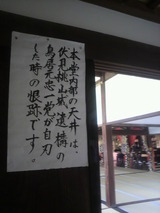 本堂内部の天井は、
伏見桃山城遺構の
鳥居元忠一党が自刃
した時の恨跡です。